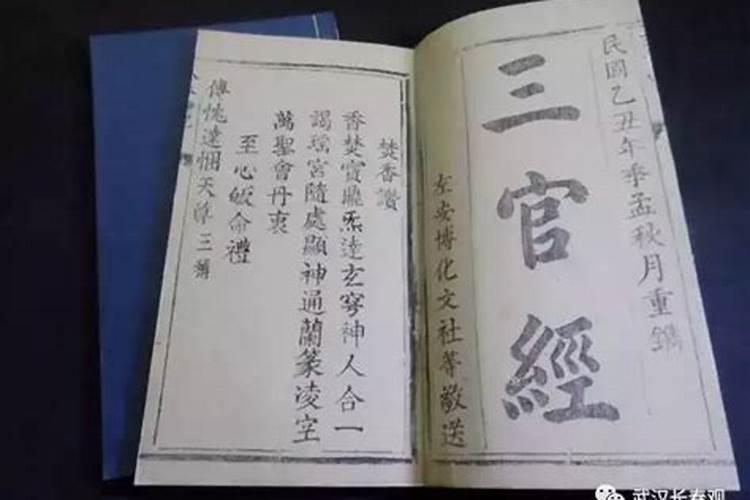 民國乙丑年季孟秋月重鐫
三官經
左安博化文社等敬送
焚香讚
香焚寶鼎炁達玄穹神人合一
謁瑶宮隨處顯神通蘭篆凌空
萬聖會丹衷
至心皈命禮
傳忱達悃天尊 三稱
武汉长春观